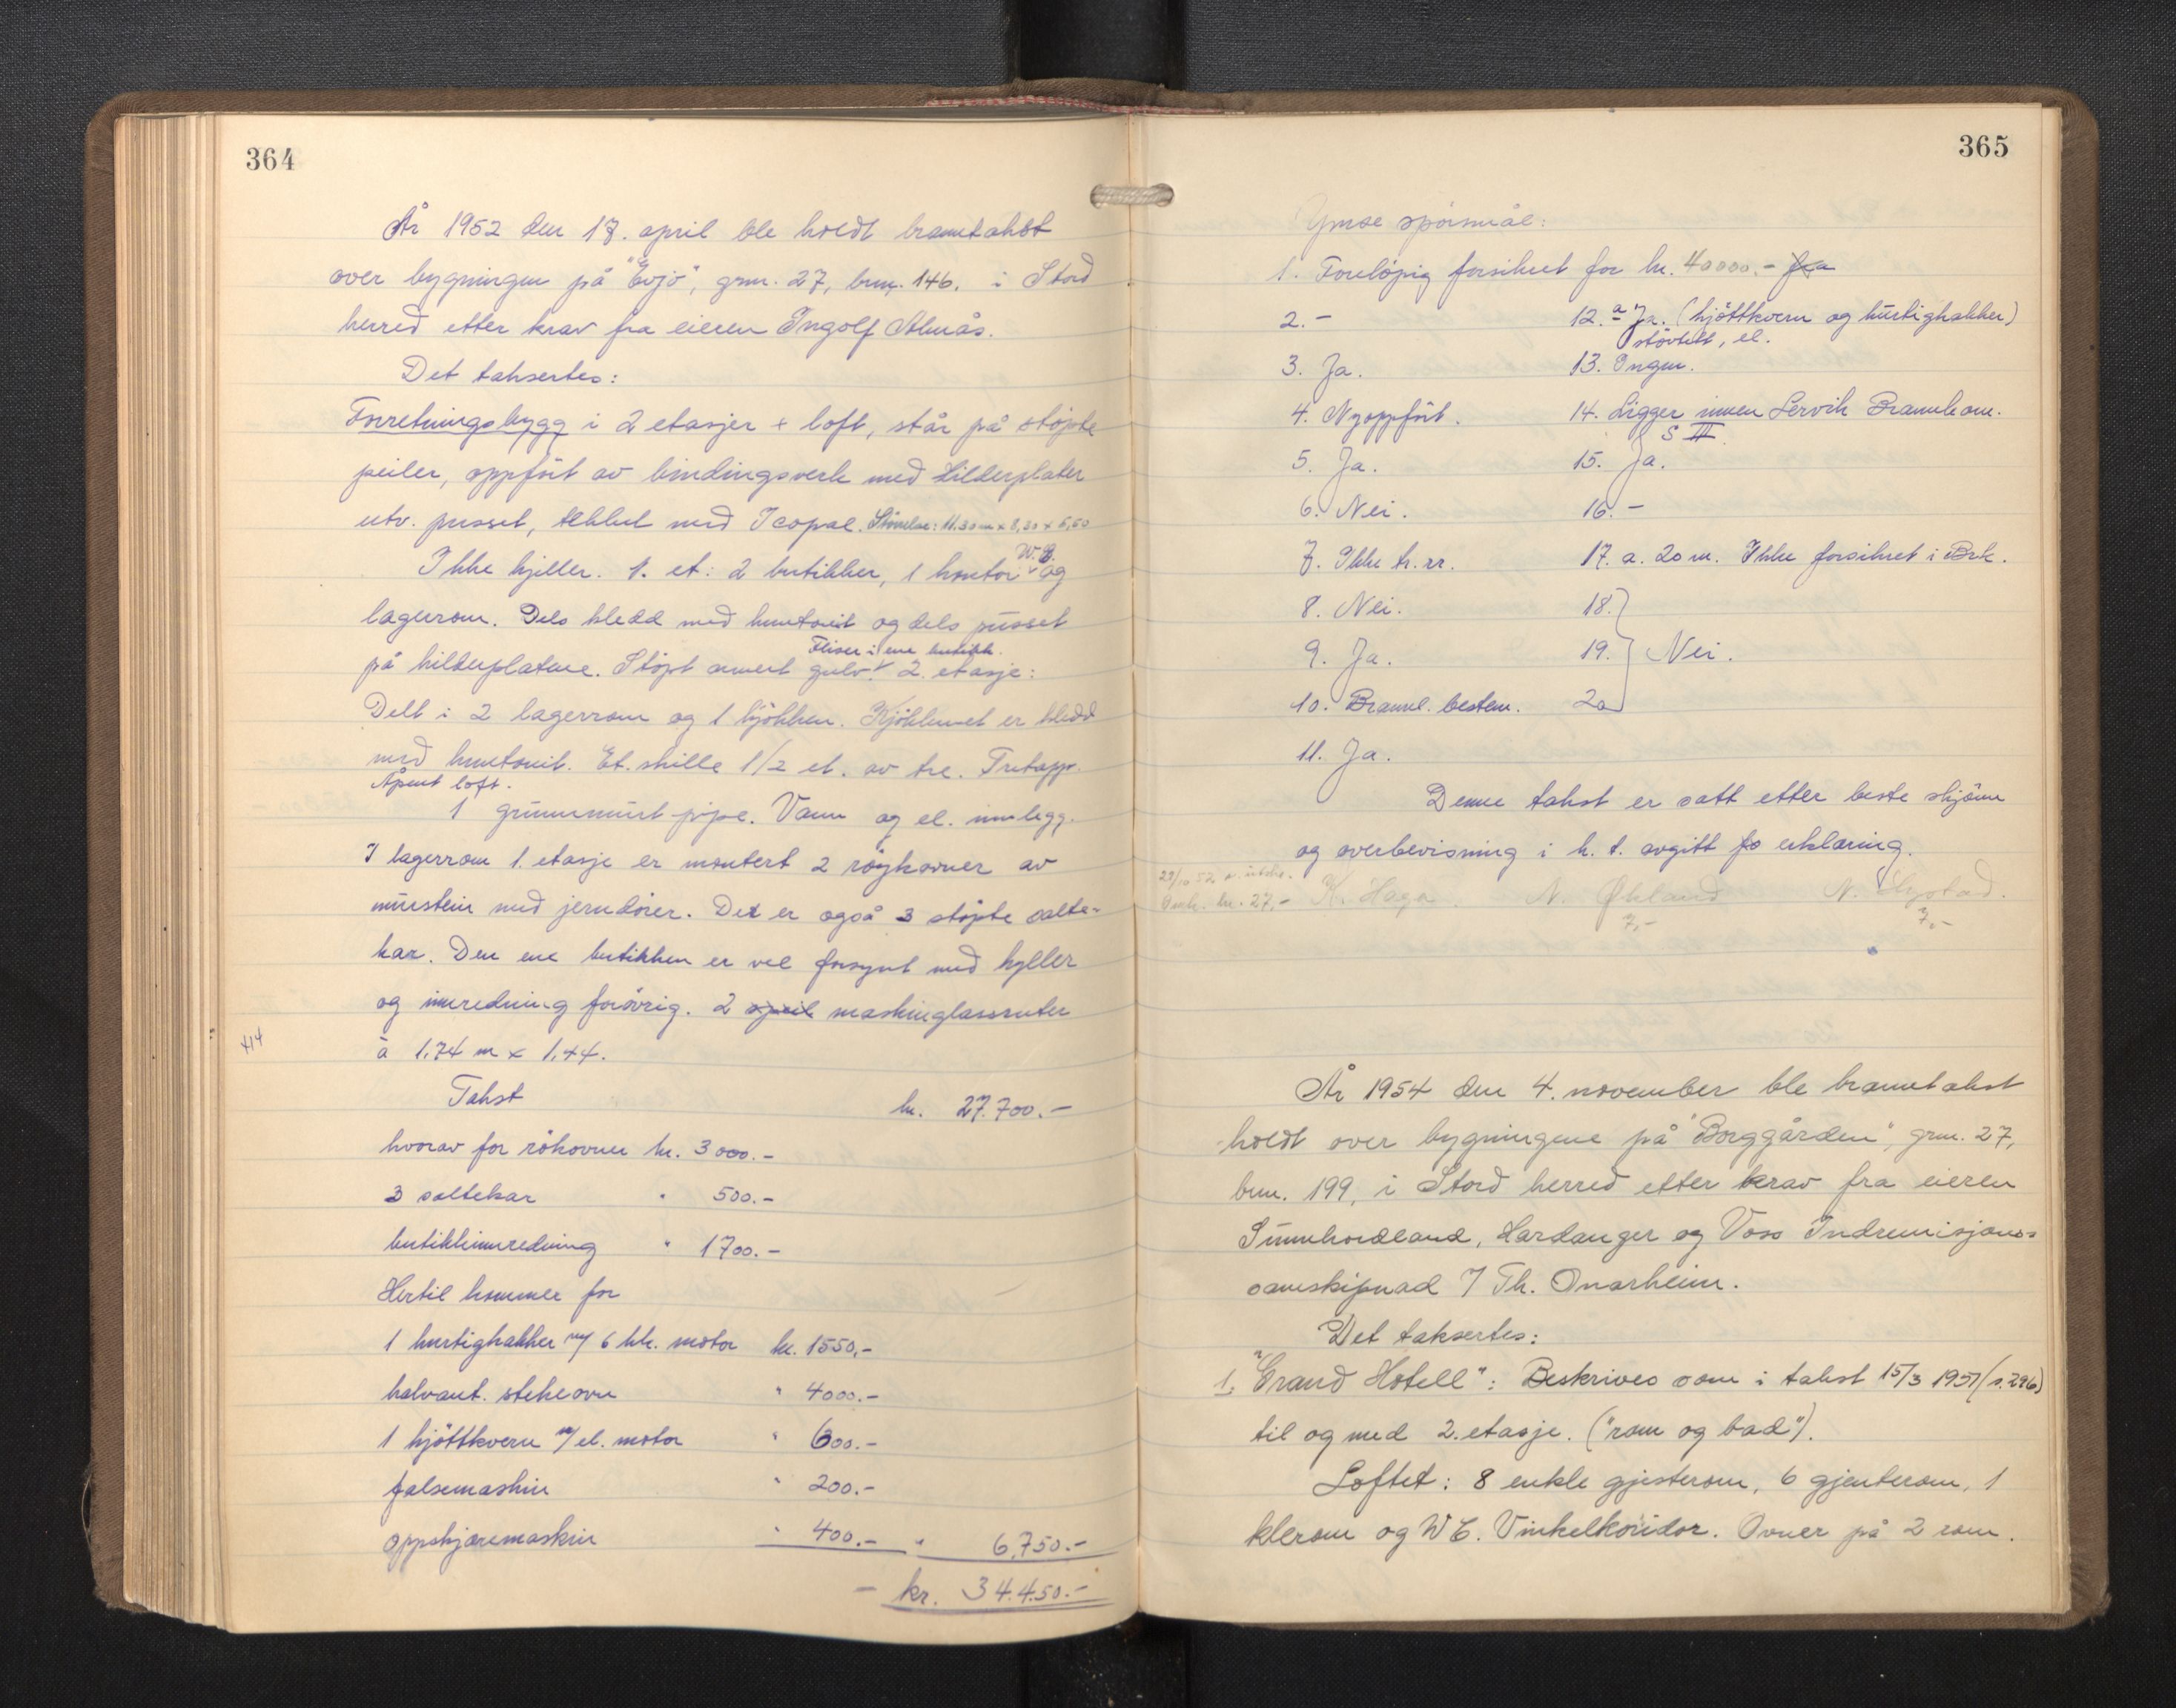 364
År 1952 den 17. april ble holdt branntakst
over bygningen på "Evjo", grn. 27, brn. 146. i Stord
herred etter krav fra eieren Ingolf Almås.
Det taksertes:
Forretningsbygg i 2 etasjer + loft, står på støpte
peiler, oppført av bindingsverk med Hilderplater
utv. pusset, tekket med Icopal. Størrelse: 11.30 m x 8,30 x 5,50
Ikke kjeller. 1. et: 2 butikker, 1 kontor W.C. og
lagerrom. Dels kledd med huntonit og dels pusset
på hilderplatene. Støpt armert gulv. Fliser i ene butikk. 2. etasje:
Delt i 2 lagerrom og 1 kjøkken. Kjøkkenet er kledd
med huntonit. Et. skille 1/2 et. av tre. Tretapp.
Åpent loft.
1 grunnmurt pipe. Vann og el. innlegg.
I lagerrom 1. etasje er montert 2 røykovner av
murstein med jerndører. Det er også 3 støpte salte-
kar. Den ene butikken er vel forsynt med hyller
og innredning forøvrig. 2 speil maskinglassruter
à 1,74 m x 1,44.
Takst kr. 27.700.-
hvorav for rökovner kr. 3000.-
3 saltekar " 500.-
butikkinnredning " 1700.-
Hertil kommer for
1 hurtighakker m/ 6 hk. motor kr. 1550,-
halvaut. stekeovn " 4000.-
1 kjöttkvern m/ el. motor " 600.-
falsemaskin " 200.-
oppskjæremaskin " 400.- " 6,750.-
- kr. 34.450.-
365
Ymse spörsmål:
1. Foreløpig forsikret for kr. 40000.- Ja
2. - 12. a Ja. (kjöttkvern og hurtighakker)
støvtett, el.
3. Ja. 13. Ingen.
4. Nyoppfört. 14. Ligger innen Lervik Brannkom.
S III.
5. Ja. 15. Ja.
6. Nei. 16. -
7. Ikke tr. rr. 17. a. 20 m. Ikke forsikret i Brk.
8. Nei. 18.
9. Ja. 19. Nei.
10. Brannl. bestem. 20
11. Ja.
Denne takst er satt etter beste skjönn
og overbevisning i h. t. avgitt fo erklæring.
K. Haga. N. Økland N. Nystad.
kr. 27,- 7,- 7,-
År 1954 den 4. november ble branntakst
holdt over bygningene på "Borggården", grn. 27,
brn. 199, i Stord herred etter krav fra eieren
Sunnhordland, Hardanger og Voss Indremisjons-
samskipnad / Th. Onarheim.
Det taksertes:
1. "Grand Hotell": Beskrives som i takst 15/3 1951 (s. 296)
til og med 2. etasje. ("rom og bad").
Loftet: 8 enkle gjesterom, 6 gjenterom, 1
klerom og WC. Vinkelkoridor. Ovner på 2 rom.